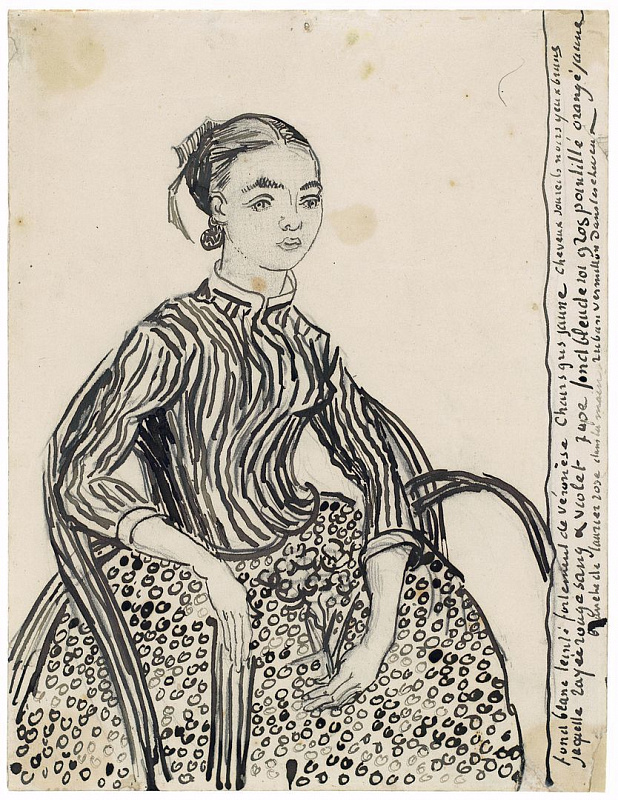 fond blanc teinté fortement de véronèse Chairs gris jaune cheveux sourcils noirs yeux bruns
jaquette rayée rouge sang & violet jupe fond bleu de roi gros pointillé orangé jaune
branche de laurier rose dans la main ruban vermillon Dans les cheveux